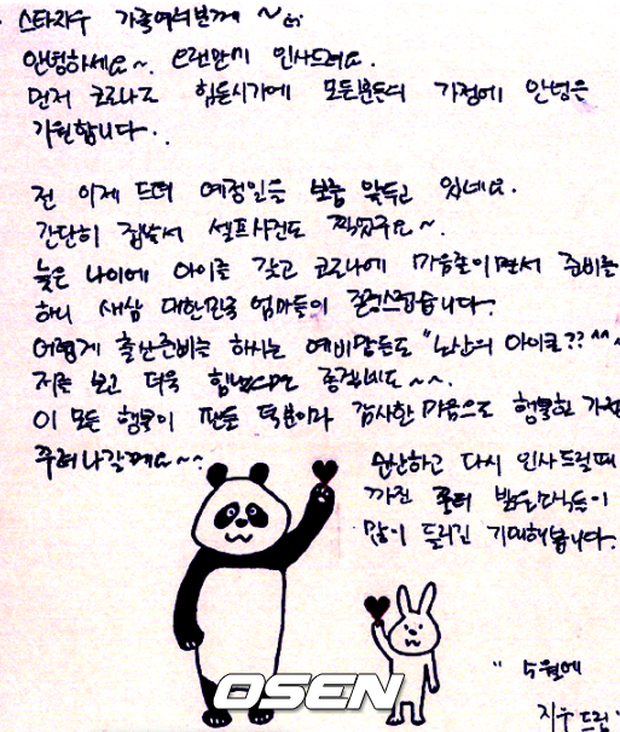 스타지우 가족여러분께 ~
안녕하세요~. 오랜만에 인사드려요.
먼저 코로나로 힘든시기에 모든분들의 가정에 안녕을
기원합니다.
전 이제 드뎌 예정일을 보름 앞두고 있네요.
간단히 집에서 셀프사진도 찍었구요~.
늦은 나이에 아이를 갖고 코로나에 마음졸이면서 준비를
하니 새삼 대한민국 엄마들이 존경스럽습니다.
어렵게 출산준비를 하시는 예비맘들도 "노산의 아이콘?? ^^~
저를 보고 더욱 힘내시길
이 모든 행복이 팬들 덕분이라 감사한 마음으로 행복한 가정
꾸려나갈께요~~.
순산하고 다시 인사드릴때
까진 좋은 소식들이
많이 들리길 기대해봅니다.
OSEN
" 5월에
지우드림"